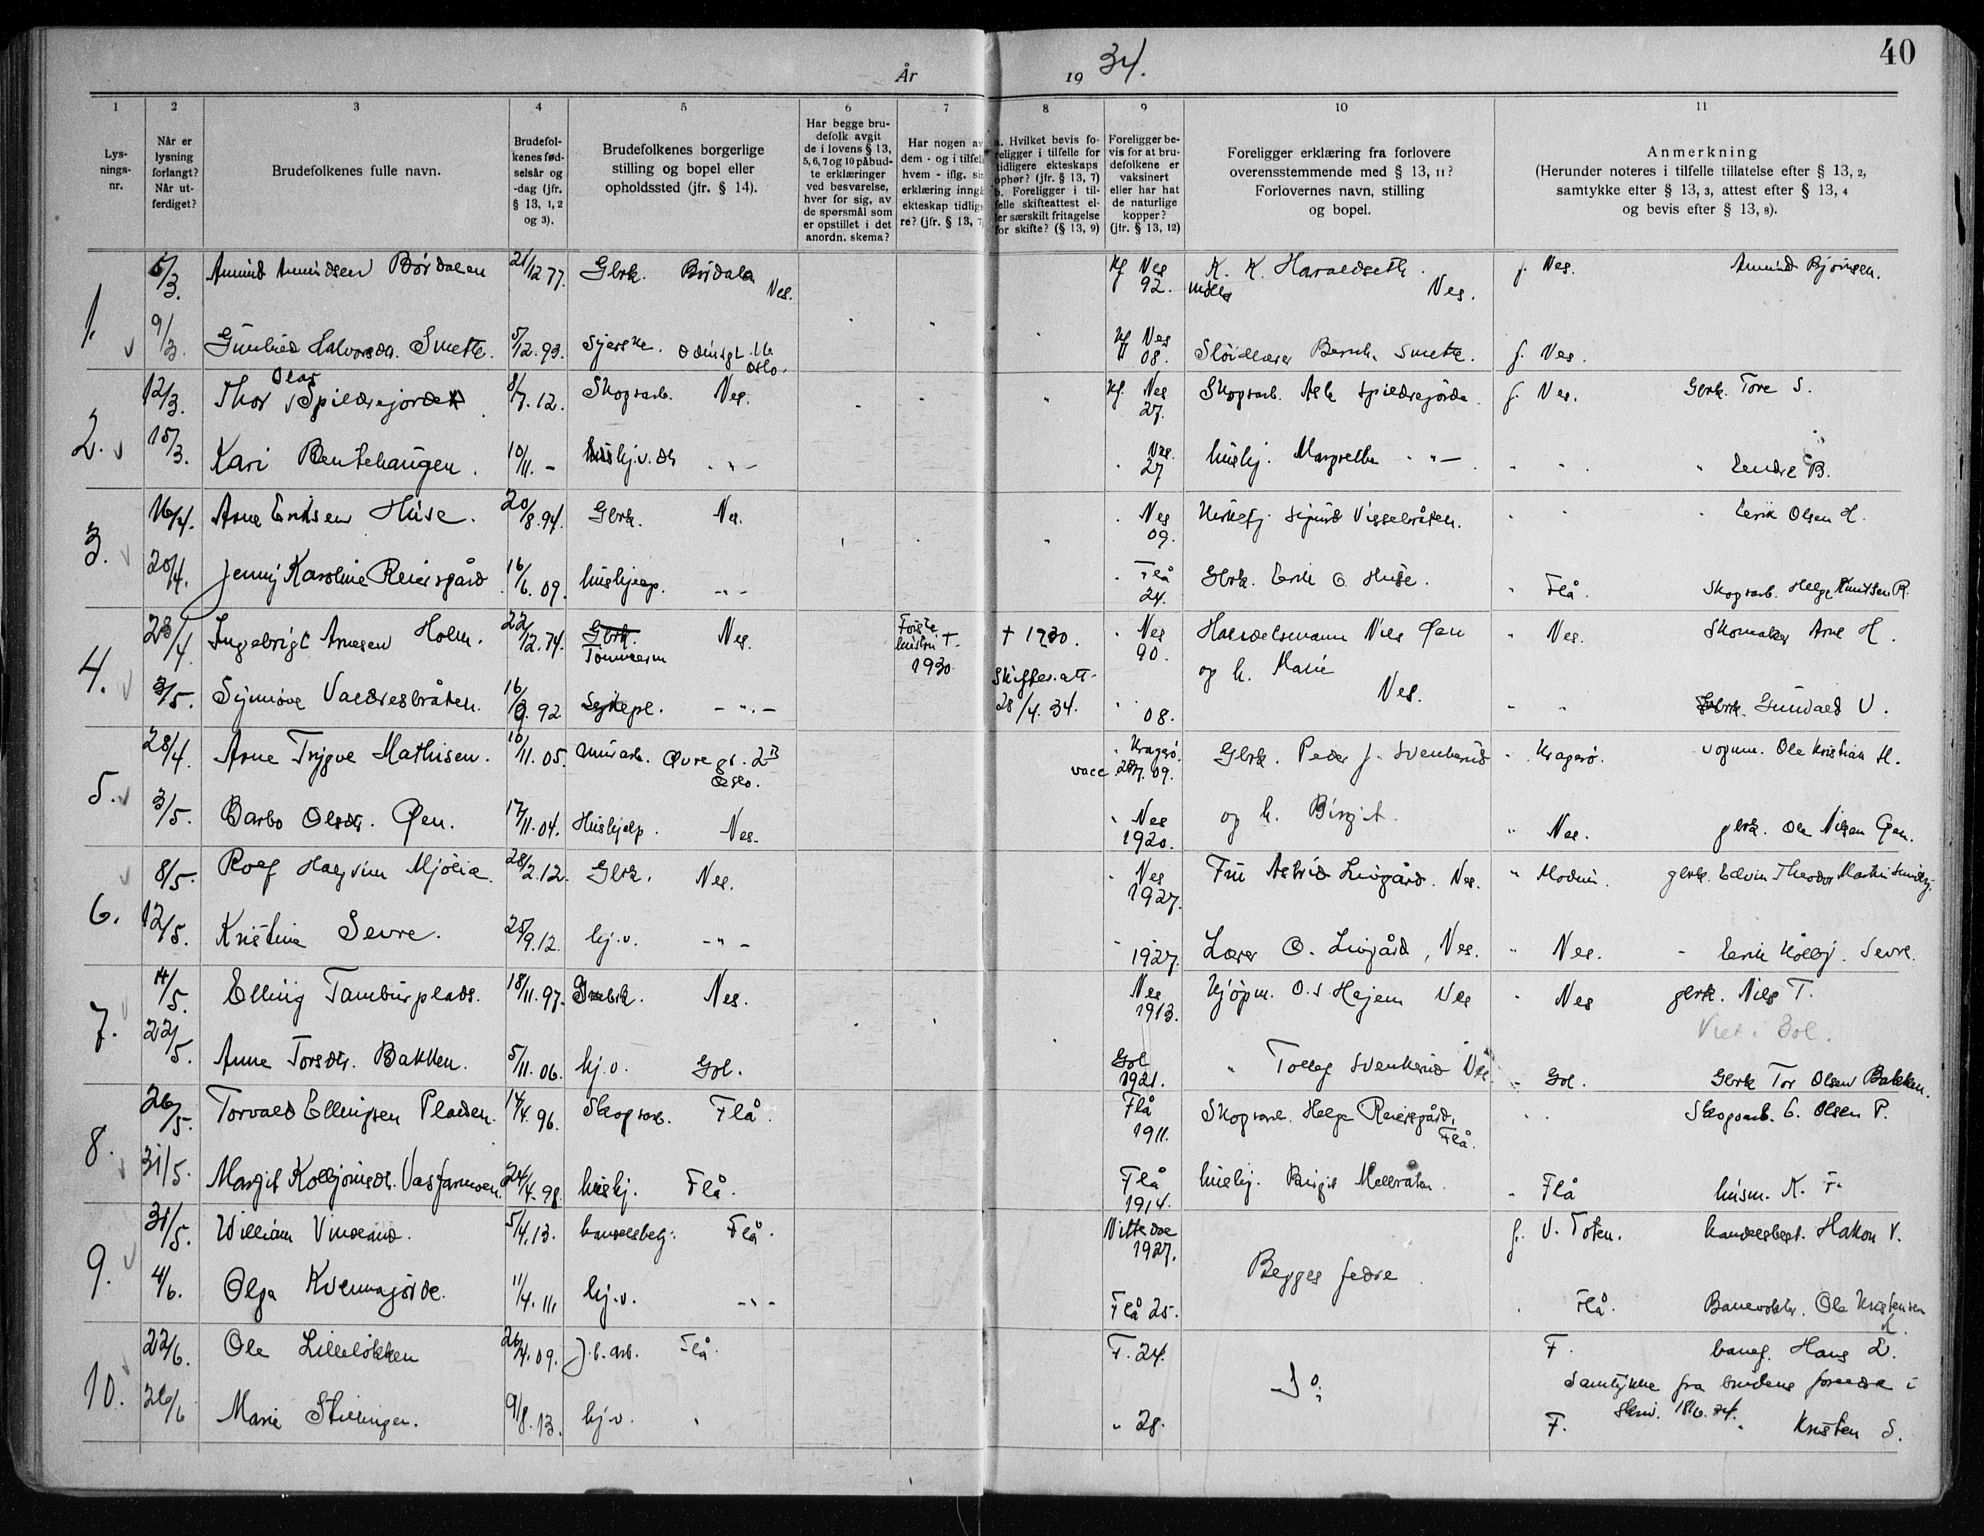 År 1934.
40
1 2 3 4 5 6 7 8 9 10 11
Lysningsnr.
Når er lysning forlangt? Når utferdiget?
Brudefolkenes fulle navn.
Brudefolkenes fødselsår og -dag (jfr. § 13, 1, 2 og 3).
Brudefolkenes borgerlige stilling og bopel eller opholdssted (jfr. § 14).
Har begge brudefolk avgit de i lovens § 13, 5, 6, 7 og 10 påbudte erklæringer ved besvarelse, hver for sig, av de spørsmål som er opstillet i det anordn. skema?
Har nogen av dem - og i tilfelle hvem - iflg. sin erklæring inngått ekteskap tidligere? (jfr. § 13, 7)
a. Hvilket bevis foreligger i tilfelle for tidligere ekteskaps ophør? (jfr. § 13, 7)
b. Foreligger i tilfelle skifteattest eller særskilt fritagelse for skifte? (§ 13, 9)
Foreligger bevis for at brudefolkene er vaksinert eller har hat de naturlige kopper? (jfr. § 13, 12)
Foreligger erklæring fra forlovere overensstemmende med § 13, 11? Forlovernes navn, stilling og bopel.
Anmerkning
(Herunder noteres i tilfelle tillatelse efter § 13, 2, samtykke efter § 13, 3, attest efter § 13, 4 og bevis efter § 13, 8).
1. 5/3. Amund Amundsen Bördalen 21/12 77. Gbrk. Bördalen Nes. Kf Nes 92. K. K. Haraldseth Nes. f. Nes. Amund Bjørnsen.
9/3. Gunhild Halvorsdr. Smette. 5/12.93. Syerske. Oslo. Kf Nes 08. Slöidlærer Bernh. Smette. f. Nes.
2. 12/3. Thor Olav Spildrejorde 8/7.12. Skogsarb. Nes. Kf. Nes 27. Skogsarb. Asle Spildrejorde f. Nes. Gbrk. Tore S.
15/3. Kari Bentehaugen. 10/11. - hushj. v. dr - " - Nes. 27 hushj. Margrethe - " - " " " Endre B.
3. 16/4. Arne Eriksen Huse. 20/8.94. Gbrk. Nes. " Nes 09. Kirketj. Sigurd Visselbråten. " " " Erik Olsen H.
20/4. Jenny Karoline Reiersgård 16/6.09. hushjelp. - " - " Flå 24. Gbrk. Erik O. Huse. " Flå. Skogsarb. Helge Knutsen R.
4. 23/4. Ingebrigt Arnesen Holm. 22/12.74. Gbrk. Tömmerm Nes. Forste hustru † 1930 † 1930. " Nes 90. Handelsmann Nils Øen " Nes. Skomaker Arne H.
3/5. Synnöve Valdresbråten. 16/9.92 Sykepl. - " - Skifteratt. 28/4.34. " 08. og h. Marie Nes. " " Gbrk. Gunvald V.
5. 28/4. Arne Trygve Mathisen. 10/11.05. Murarb. Øvre gt. 2 B Oslo. " Kragerö. vacc 28/7.09. Gbrk. Peder J. Svenkerud " Kragerö. vognm. Ole Kristian M.
3/5. Barbo Olsdr. Øen. 17/11.04. Hushjelp. Nes. " Nes 1920. og h. Birgit. " Nes. gbrk. Ole Nilsen Øen.
6. 8/5. Rolf Halvin Mjölid. 28/2.12. Gbrk. Nes. " Nes 1927. Fru Astrid Livgård. Nes. " Modum. gbrk. Edvin Theodor Martin
12/5. Kristine Sevre. 25/9.12. hj. v. - " - " 1927. Lærer O. Livgård, Nes. " Nes. " Erik Kolbj. Sevre.
7. 14/5. Elling Tamburplads. 18/11.97. Gbrk. Nes. Nes 1913. Kjöpm. O. S Hajem Nes " Nes gbrk. Nils T.
Viet i Gol.
22/5. Anne Torsdr. Bakken. 5/11.06. hj. v. Gol. Gol 1921. " Tollef Svenkerud Nes - Gol. Gbrk Tor Olsen Bakken.
8. 26/5. Torvald Ellingsen Pladsen. 14/4.96. Skogsarb. Flå. Flå 1911. Skogsarb. Helge Reiersgård. Flå. " " Skogsarb. E. Olsen P.
31/5. Margit Kolbjörnsdr. Vasfarmoen. 24/4.98. hushj. Flå. Flå 1914. hushj. Birgit Mellbråten. " Flå husm. K. F.
9. 31/5. William Vindland. 5/4.13. handelsbetj. Flå. Nittedal 1927. Begges fedre. f. V. Toten. handelsbest. Hakon V.
4/6. Olga Kvennajorde. 11/4.11. hj. v. - " - Flå 25. " Flå. Banevokter. Ole Kristensen K.
10. 22/6. Ole Lilleløkken 26/4.09. J. b. arb. Flå. F. 24. Do: F. banef. Hans L.
Samtykke fra brudens foreldre i skriv. 18/6.34.
26/6 Marie Stillinger. 9/8.13. hj. v. " " 28. F. " Kristen S.